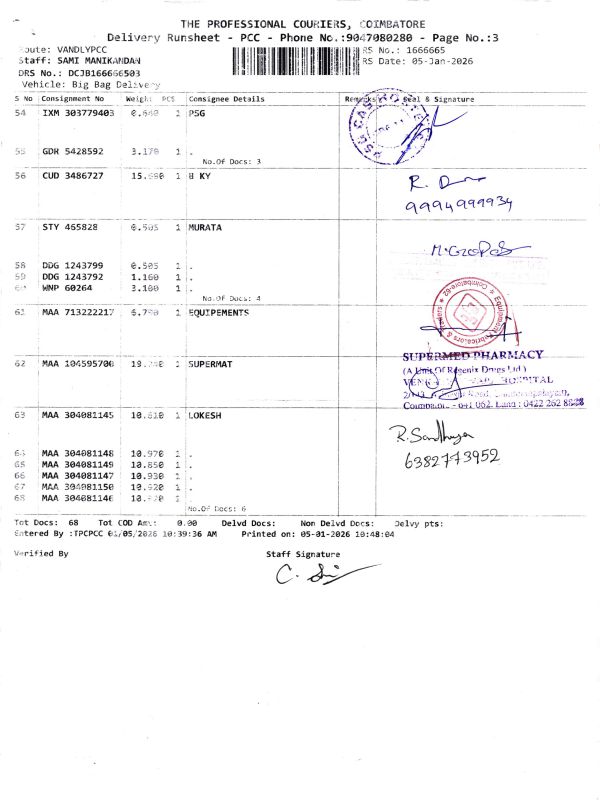 THE PROFESSIONAL COURIERS, COIMBATORE
Delivery Runsheet - PCC - Phone No.:9047080280 - Page No.:3
Route: VANDLYPCC
RS No.: 1666665
Staff: SAMI MANIKANDAN
RS Date: 05-Jan-2026
DRS No.: DCJB166666503
Vehicle: Big Bag Delivery
S No Consignment No Weight PCS Consignee Details Remarks Seal & Signature
54 IXM 303779403 0.640 1 PSG
55 GDR 5428592 3.170 1 .
No.Of Docs: 3
56 CUD 3486727 15.690 1 B KY
R.
9994999934
57 STY 465828 0.505 1 MURATA
58 DDG 1243799 0.505 1 .
59 DDG 1243792 1.160 1 .
60 WNP 60264 3.100 1 .
No.Of Docs: 4
61 MAA 713222217 6.790 1 EQUIPEMENTS
Equipment Fabricators & Traders ★ Coimbatore-62 ★
62 MAA 104595700 1 SUPERMAT
SUPERMED PHARMACY
(A Unit Of Regenix Drugs Ltd)
HOSPITAL
Coimbatore - 641 062. Land : 0422 262 8828
63 MAA 304081145 10.610 1 LOKESH
R. Sandhya
6382773952
64 MAA 304081148 10.970 1 .
65 MAA 304081149 10.850 1 .
66 MAA 304081147 10.930 1 .
67 MAA 304081150 10.920 1 .
68 MAA 304081146 1 .
No.Of Docs: 6
Tot Docs: 68 Tot COD Amt: 0.00 Delvd Docs: Non Delvd Docs: Delvy pts:
Entered By :TPCPCC 01/05/2026 10:39:36 AM Printed on: 05-01-2026 10:48:04
Verified By Staff Signature